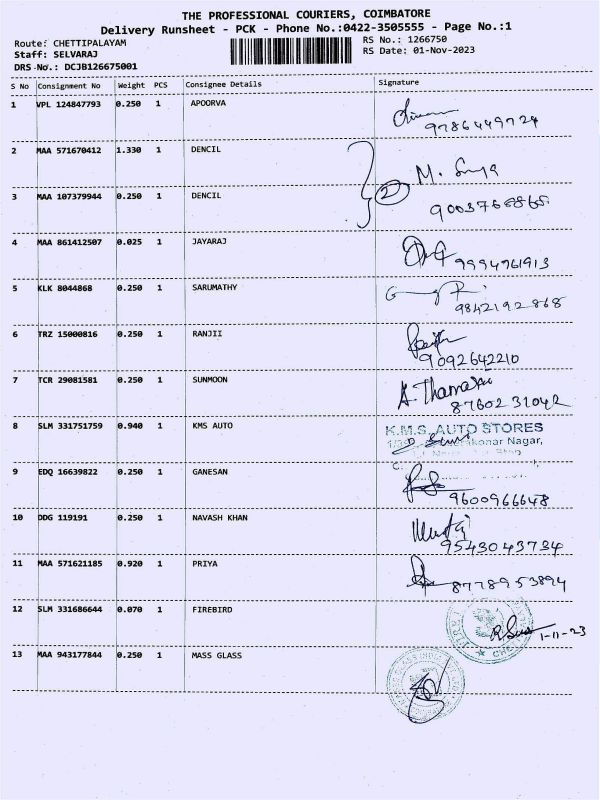 THE PROFESSIONAL COURIERS, COIMBATORE
Delivery Runsheet - PCK - Phone No.:0422-3505555 - Page No.:1
Route: CHETTIPALAYAM RS No.: 1266750
Staff: SELVARAJ RS Date: 01-Nov-2023
DRS No.: DCJB126675001
S No Consignment No Weight PCS Consignee Details Signature
1 VPL 124847793 0.250 1 APOORVA
9786449724
2 MAA 571670412 1.330 1 DENCIL
M.
2
3 MAA 107379944 0.250 1 DENCIL
4 MAA 861412507 0.025 1 JAYARAJ
9994961913
5 KLK 8044868 0.250 1 SARUMATHY
9842192868
6 TRZ 15000816 0.250 1 RANJII
9092642210
7 TCR 29081581 0.250 1 SUNMOON
8760231042
8 SLM 331751759 0.940 1 KMS AUTO
K.M.S. AUTO STORES
Nagar,
9 EDQ 16639822 0.250 1 GANESAN
9600966648
10 DDG 119191 0.250 1 NAVASH KHAN
9543043734
11 MAA 571621185 0.920 1 PRIYA
8778953894
12 SLM 331686644 0.070 1 FIREBIRD
1-11-23
13 MAA 943177844 0.250 1 MASS GLASS